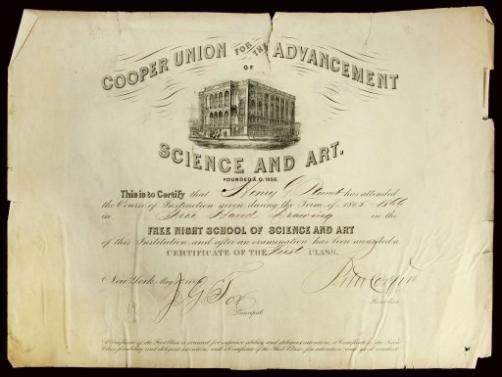 COOPER UNION FOR THE ADVANCEMENT
OF
SCIENCE AND ART.
FOUNDED A.D. 1858.
This is to Certify that Henry has attended
the Course of Instruction given during the Term of 1865-1866
in Free Hand Drawing in the
FREE NIGHT SCHOOL OF SCIENCE AND ART
of this Institution and after an examination has been awarded a
CERTIFICATE OF THE First CLASS.
New York May
J. G. Fox
Principal
A Certificate of the First Class is awarded for superior ability and diligent attention, a Certificate of the Second
Class for ability and diligent attention, and a Certificate of the Third Class for attention with good conduct